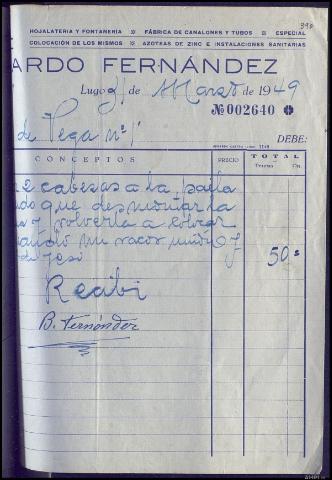 HOJALATERIA Y FONTANERÍA ※ FÁBRICA DE CANALONES Y TUBOS ※ ESPECIAL
COLOCACIÓN DE LOS MISMOS ※ AZOTEAS DE ZINC E INSTALACIONES SANITARIAS
ARDO FERNÁNDEZ
Lugo, 31 de Marzo de 1949
№ 002640
de Vega nº 1
DEBE:
CONCEPTOS PRECIO TOTAL
Pesetas Cts.
2 cabezas a la paila
que desmontarla
y volverla a colocar
un racor unión y
de yeso 50 $
Recibi
B. Fernández